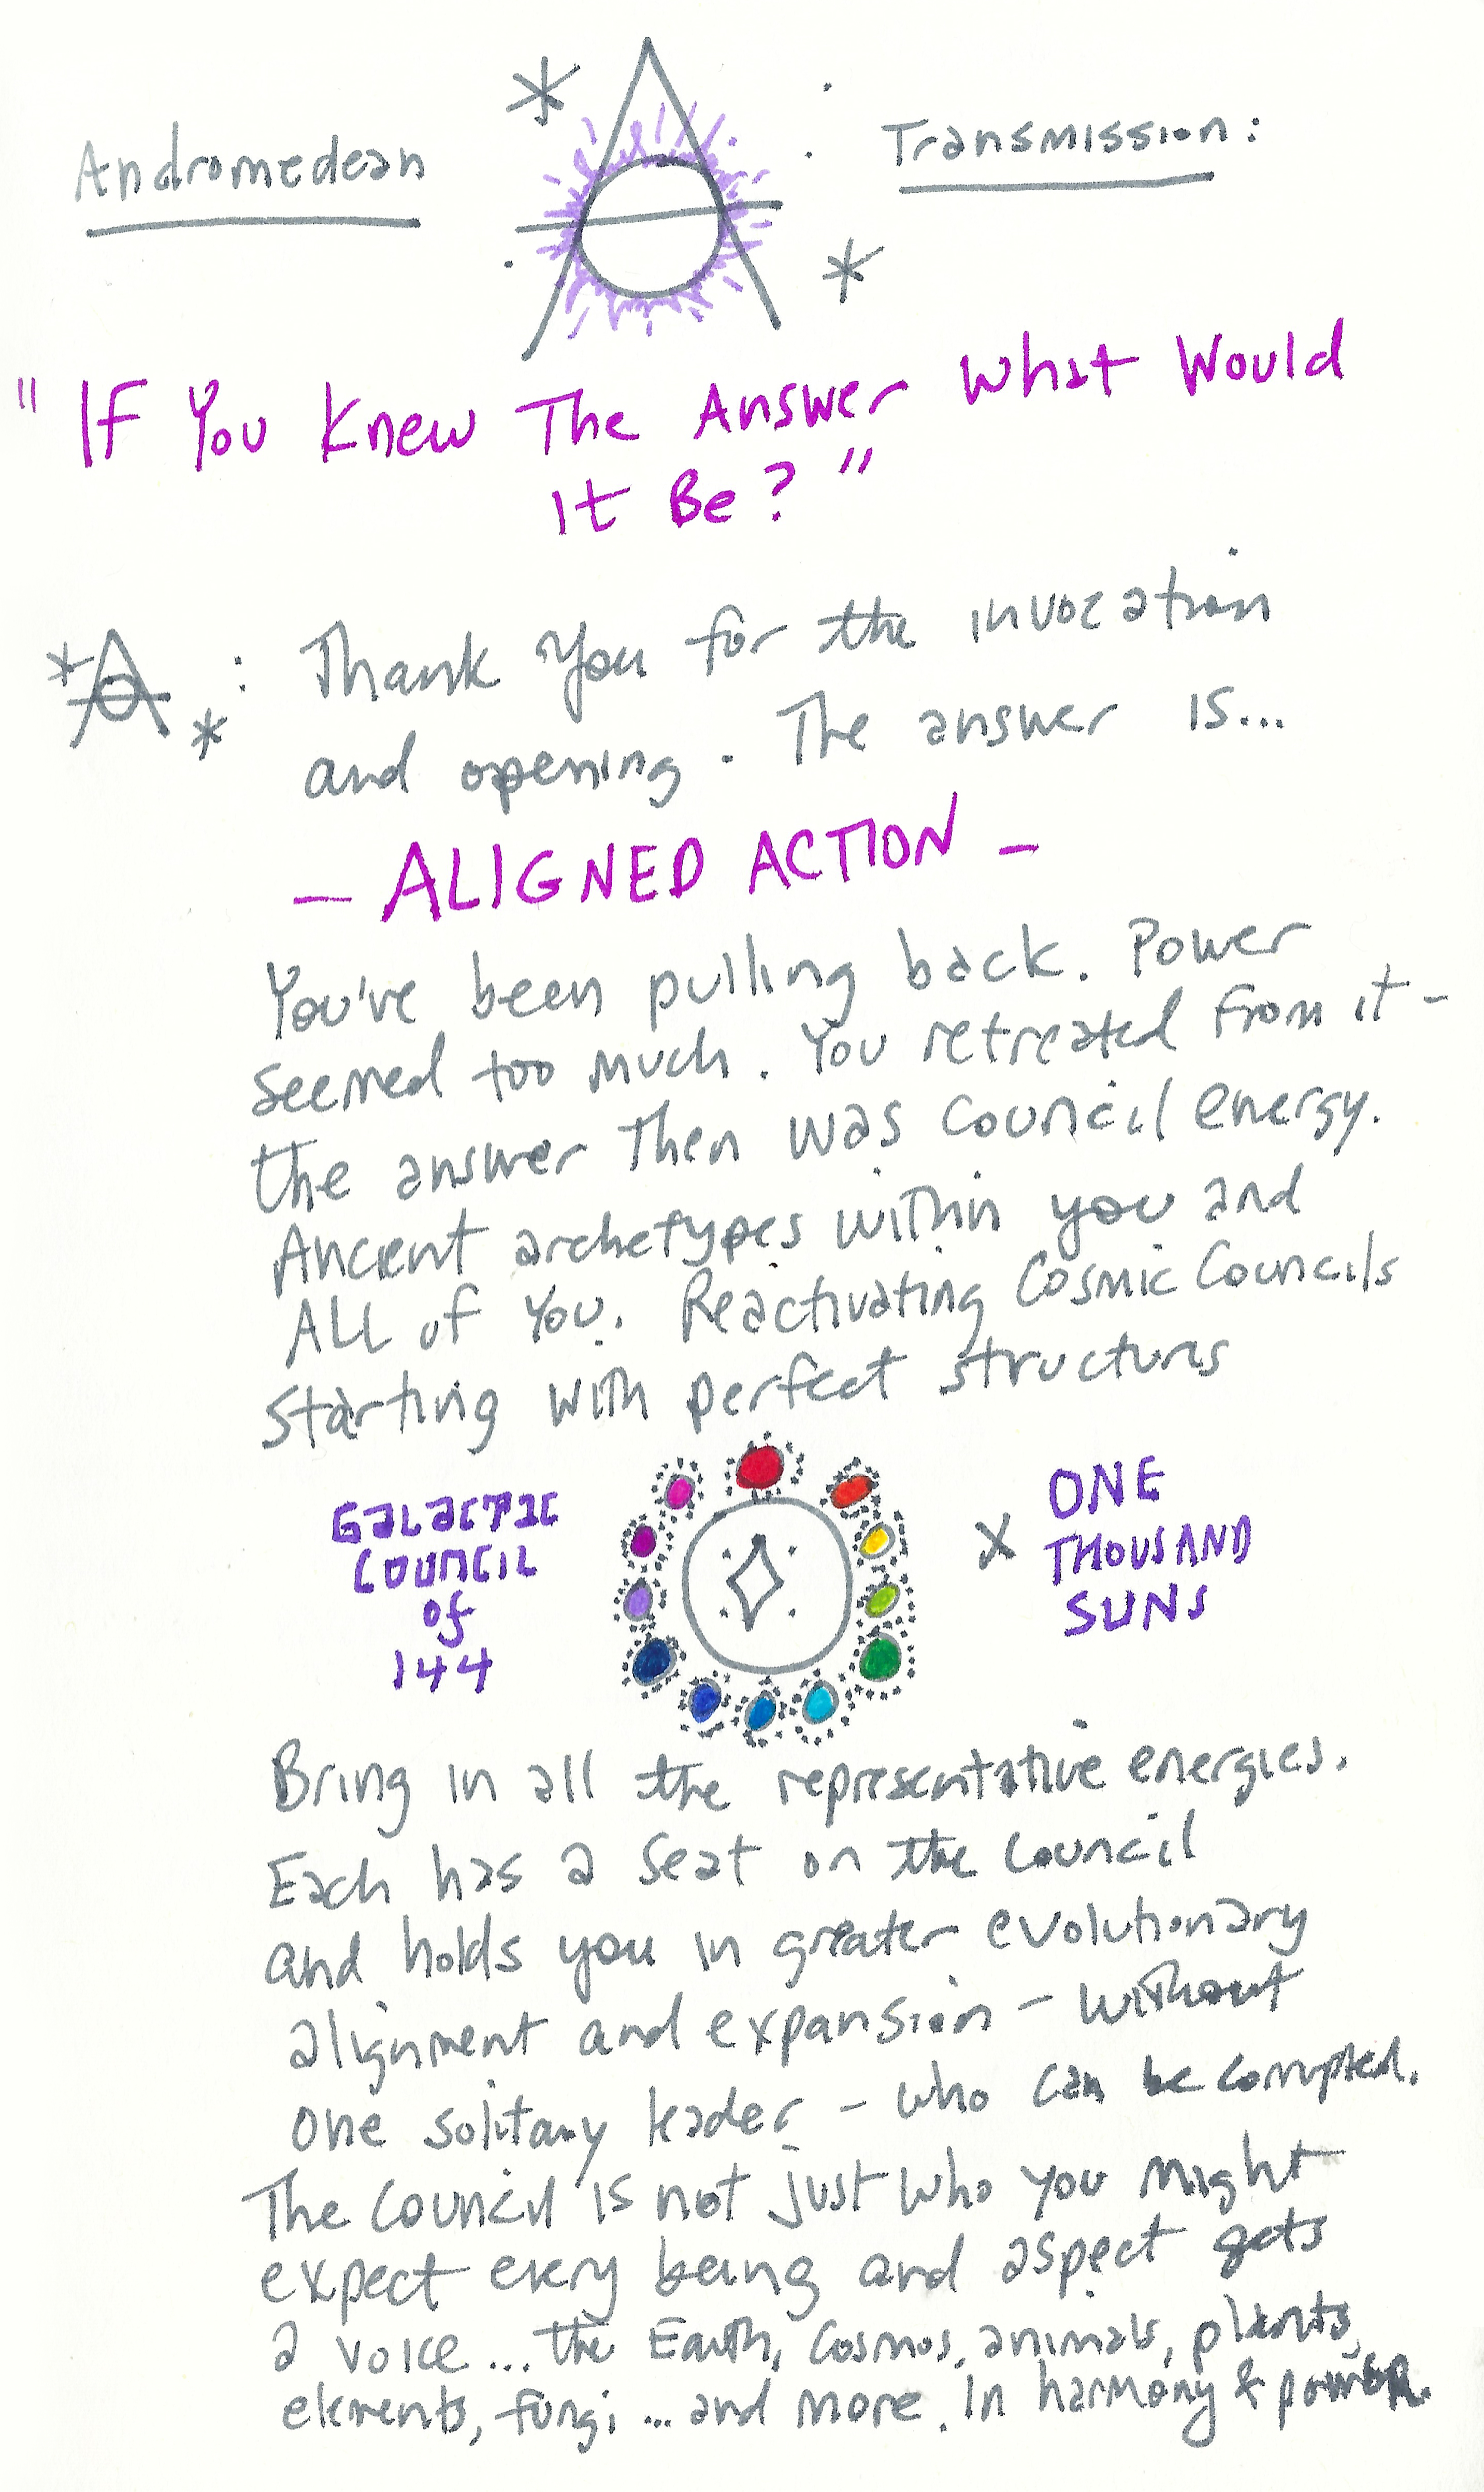 Andromedean Transmission:
" If You Knew The Answer What Would
It Be? "
: Thank You for the invocation
and opening. The answer is...
- ALIGNED ACTION -
You've been pulling back. Power
seemed too much. You retreated from it -
the answer then was council energy.
Ancient archetypes within you and
ALL of You. Reactivating Cosmic Councils
starting with perfect structures
GALACTIC
COUNCIL
of
144
x ONE
THOUSAND
SUNS
Bring in all the representative energies.
Each has a seat on the Council
and holds you in greater evolutionary
alignment and expansion - without
one solitary leader - who can be corrupted.
The Council is not just who you might
expect every being and aspect gets
a voice... the Earth, Cosmos, animals, plants,
elements, fungi ... and more. In harmony & power.